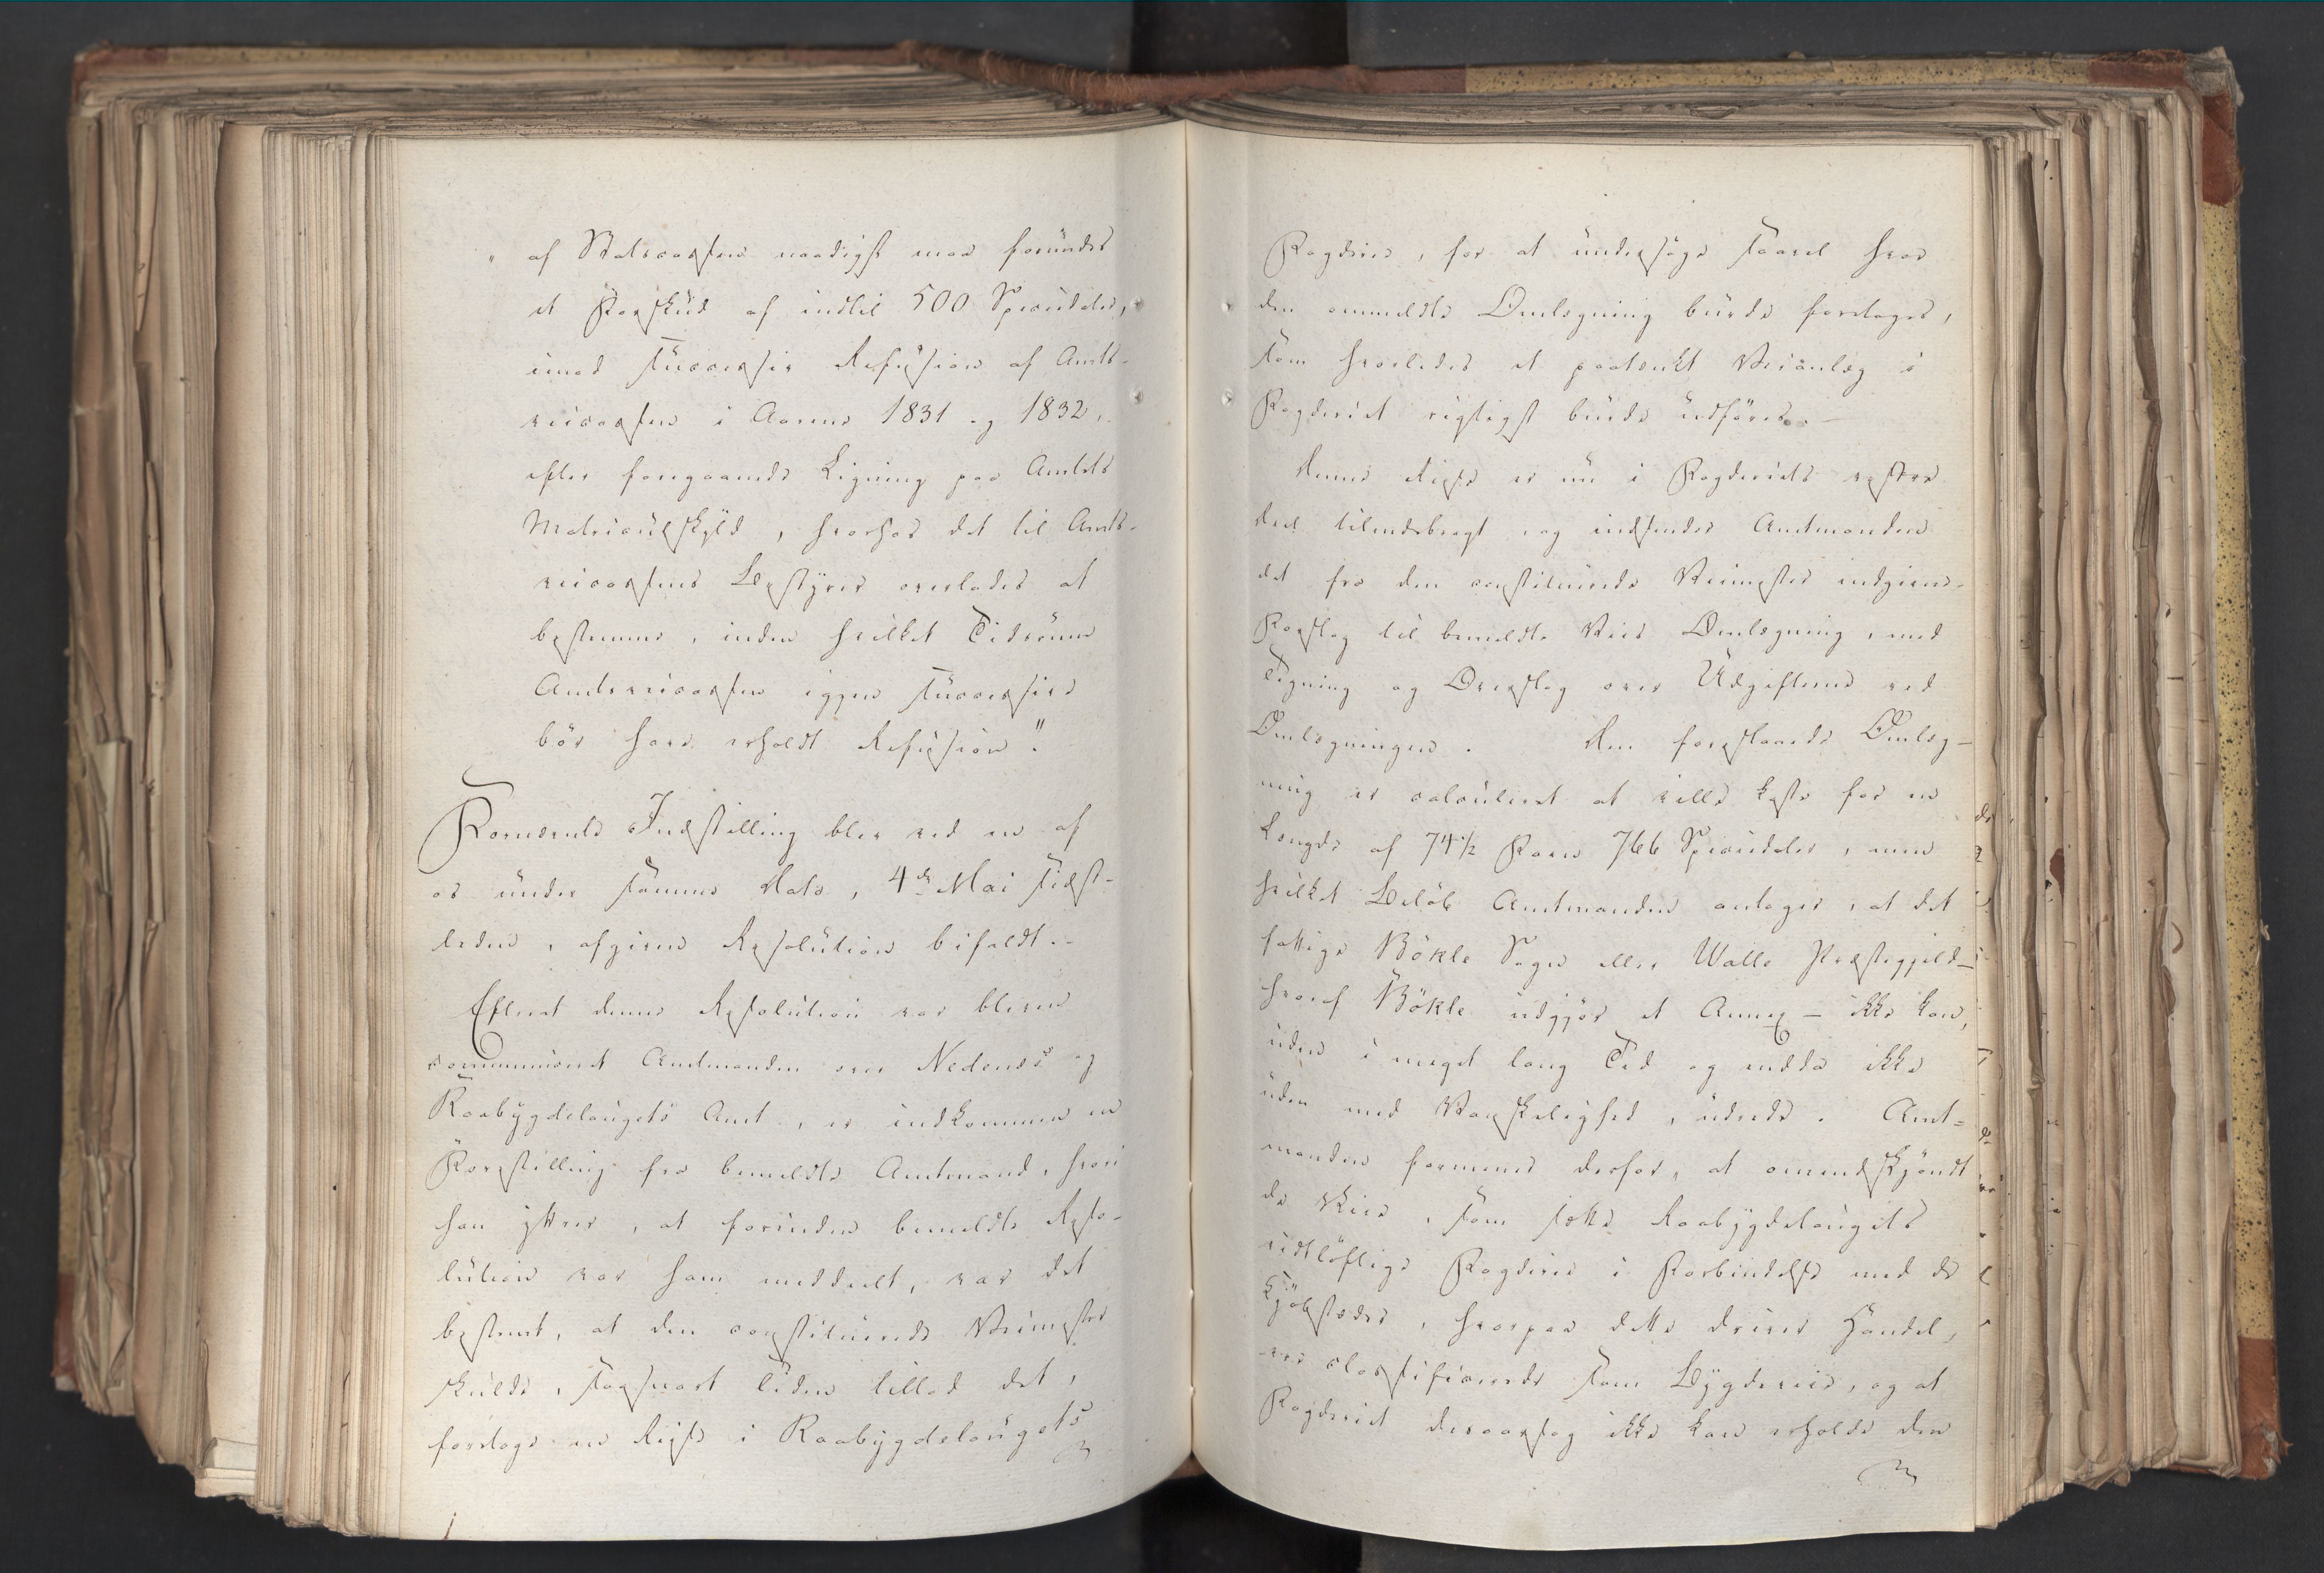 " af Statscassen naadigst maa forundes
et Forskud af indtil 500 Speciedaler,
imod successiv Refusion af Amts-
veicassen i Aarene 1831 og 1832,
efter foregaaende Ligning paa Amtets
Matriculskyld, hvorhos det til Amts-
veicassens Bestyrer overlades at
bestemme, inden hvilket Tidsrum
Amtsveicassen igjen successive
bör have erholdt Refusion".
Fornævnte Indstilling blev ved en af
os under samme Dato, 4de Mai sidst-
leden, afgiven Resolution bifaldt.-
Efterat denne Resolution var bleven
communiceret Amtmanden over Nedenæs og
Raabygdelaugets Amt, er indkommen en
Forestilling fra bemeldte Amtmand, hvori
han yttrer, at forinden bemeldte Reso-
lution var ham meddeelt, var det
bestemt, at den constituerede Veimester
skulde, saasnart Tiden tillod det,
foretage en Reise i Raabygdelaugets
Fogderie, for at undersöge saavel hvor
den ommeldte Omlægning burde foretages,
som hvorledes et paatænkt Veianlæg i
Fogderiet rigtigst burde udföres.-
Denne Reise er nu i Fogderiets vestre
Deel tilendebragt, og indsender Amtmanden
det fra den constituerede Veimester indgivne
Forslag til bemeldte Veies Omlægning, med
Tegning og Overslag over Udgifterne ved
Omlægningen. Den foreslaaede Omlæg-
ning er calculeret at ville koste for en
Længde af 74½ Favn 766 Speciedaler, men
hvilket Belöb Amtmanden antager, at det
fattige Bökle Sogn eller Walle Præstegjeld-
hvoraf Bökle udgjör et Annex - ikke kan,
uden i meget lang Tid og endda ikke
uden med Vanskelighed, udrede. Amt-
manden formener derfor, at omendskjöndt
de Veie, som sætte Raabygdelaugets
vidtlöftige Fogderie i Forbindelse med de
Kjöbstæder, hvorpaa dette driver Handel,
ere classificerede som Bygdeveie, og at
Fogderiet desaarsag ikke kan erholde den